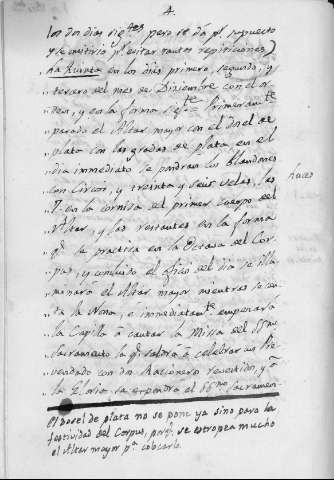 4.
los dos dias sig.tes pero se dá p.r supuesto
y se omitirá p.r evitar tantas repeticiones)
na Quinta en los dias primero, segundo, y
tercero del mes de Diciembre con el or-
den, y en la forma sig.te Primeram.te
parado el Altar mayor con el dosel de
plata con las gradas de plata en el
dia inmediato se pondran los Blandones
con Cirios, y treinta y seis velas, las
7 en la cornisa del primer cuerpo del
Altar, y las restantes en la forma
q.e se practica en la Octava del Cor-
pus, y concluido el oficio del dia se illu-
minará el Altar mayor mientras se can-
ta la Nona, e inmediatam.te empezará
la Capilla á cantar la Missa del SS.mo
Sacramento la q.e saldrá á celebrar un Pre-
vendado con dos Racioneros revestidos, y á
la Gloria se expondrá el SS.mo Sacramen-
luces
El dosel de plata no se pone ya sino para la
festividad del Corpus, porq.e se estropea mucho
el Altar mayor p.a colocarlo.